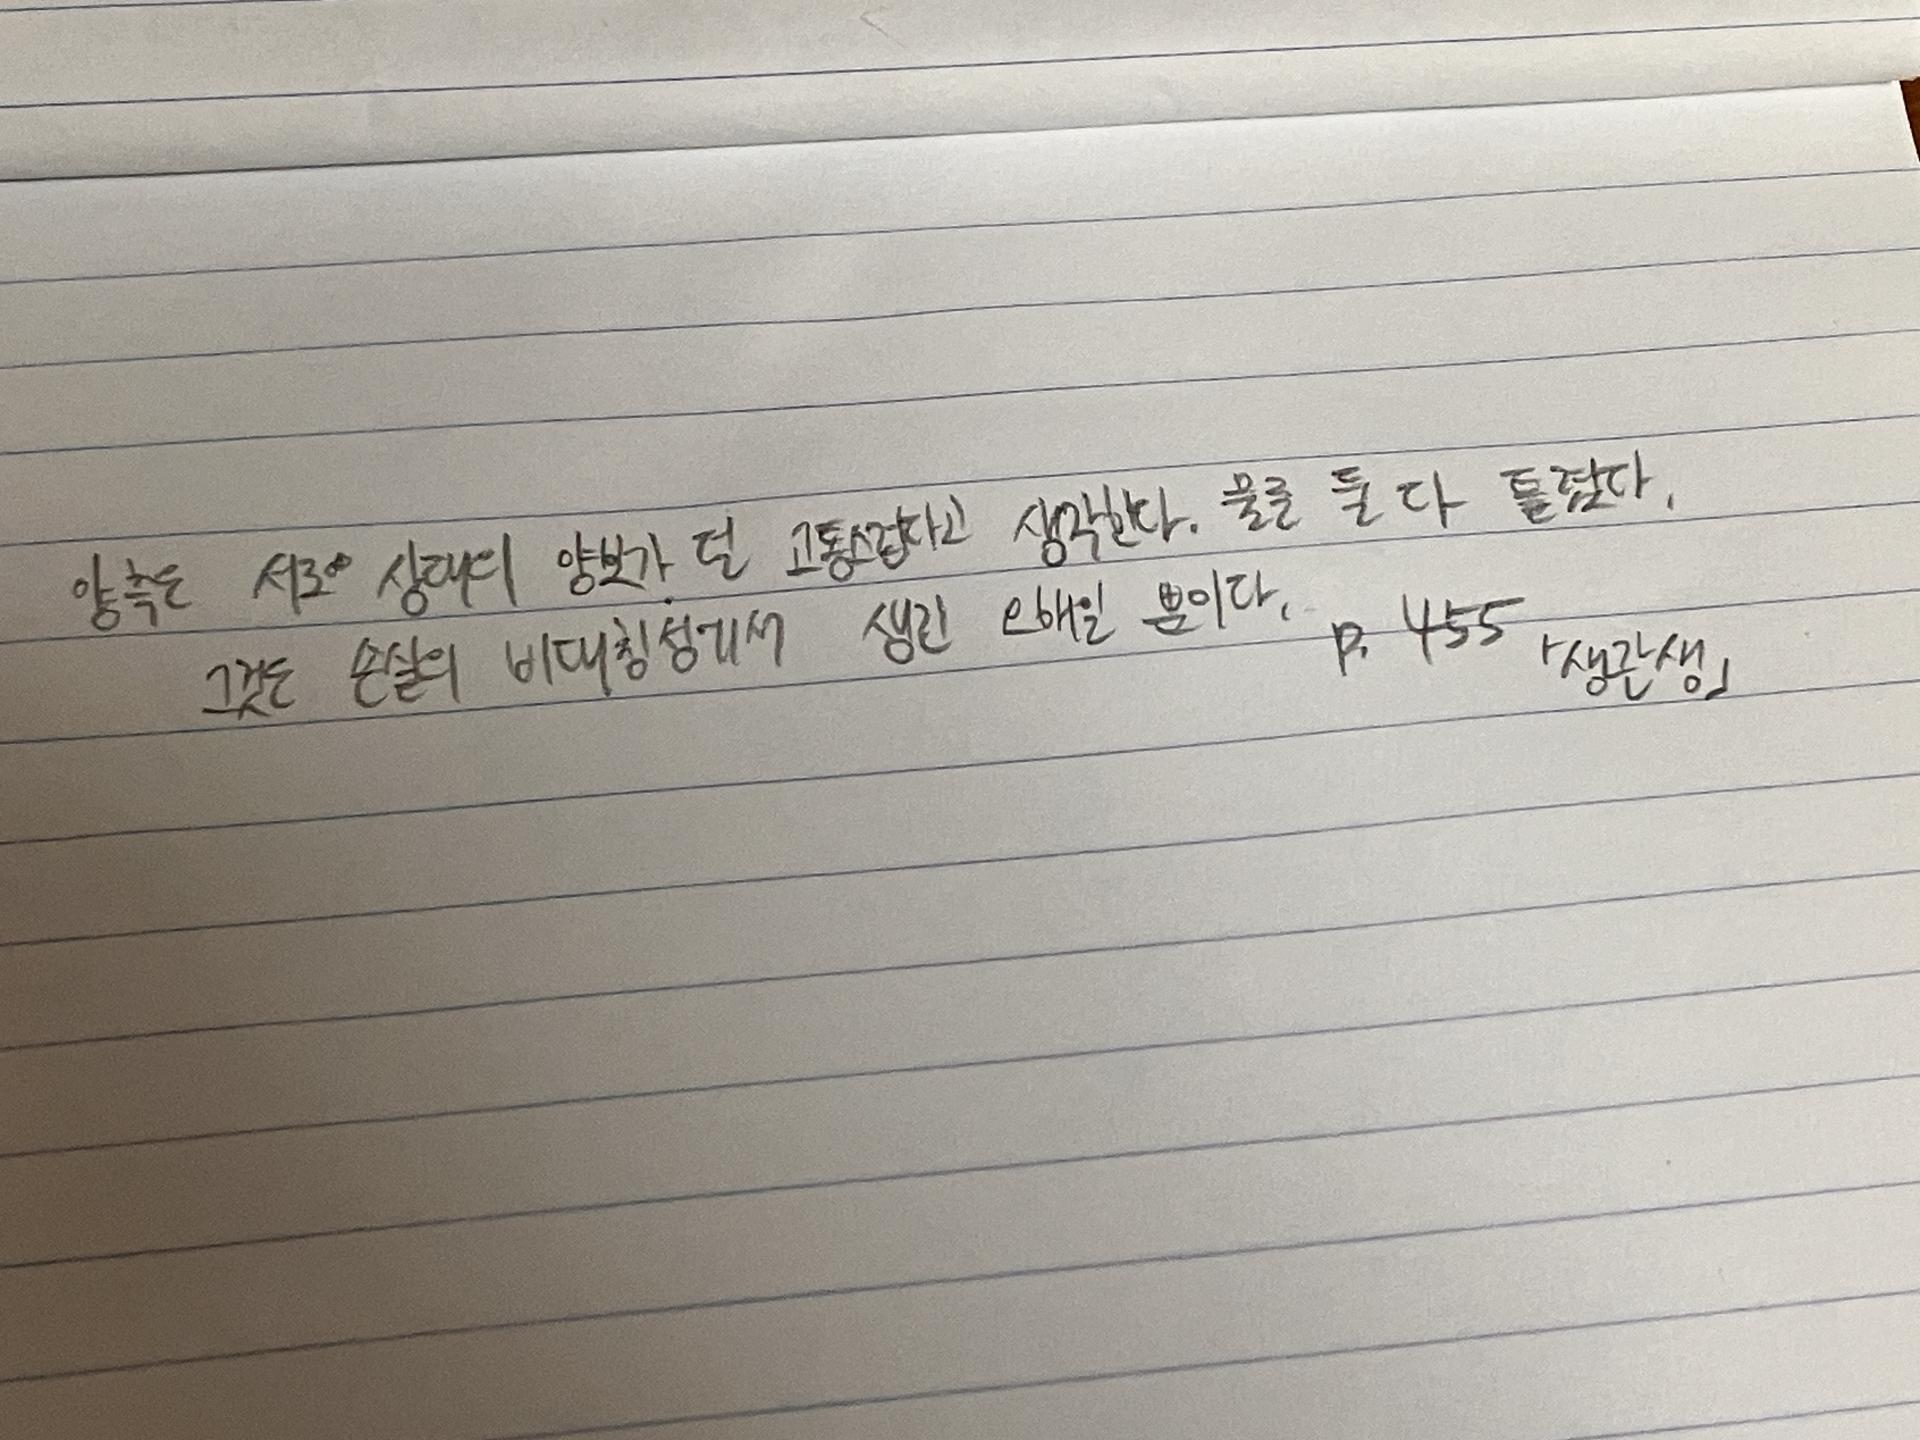 양측은 서로 상대의 양보가 덜 고통스럽다고 생각한다. 물론 둘 다 틀렸다.
그것은 손실의 비대칭성에서 생긴 오해일 뿐이다. p. 455 「생관생」